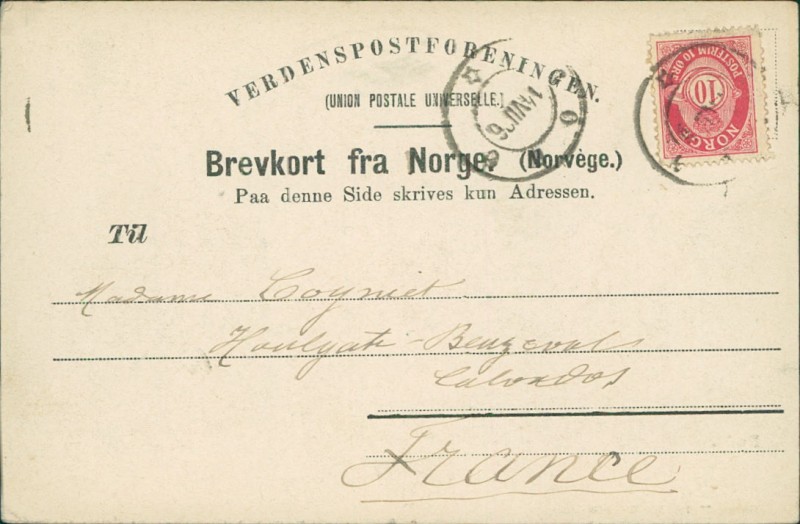 VERDENSPOSTFORENINGEN.
(UNION POSTALE UNIVERSELLE.)
Brevkort fra Norge. (Norvège.)
Paa denne Side skrives kun Adressen.
Til
Madame Cogniet
Houlgate-Beuzeval
Calvados
France
POSTFRIM 10 ØRE
10
NORGE